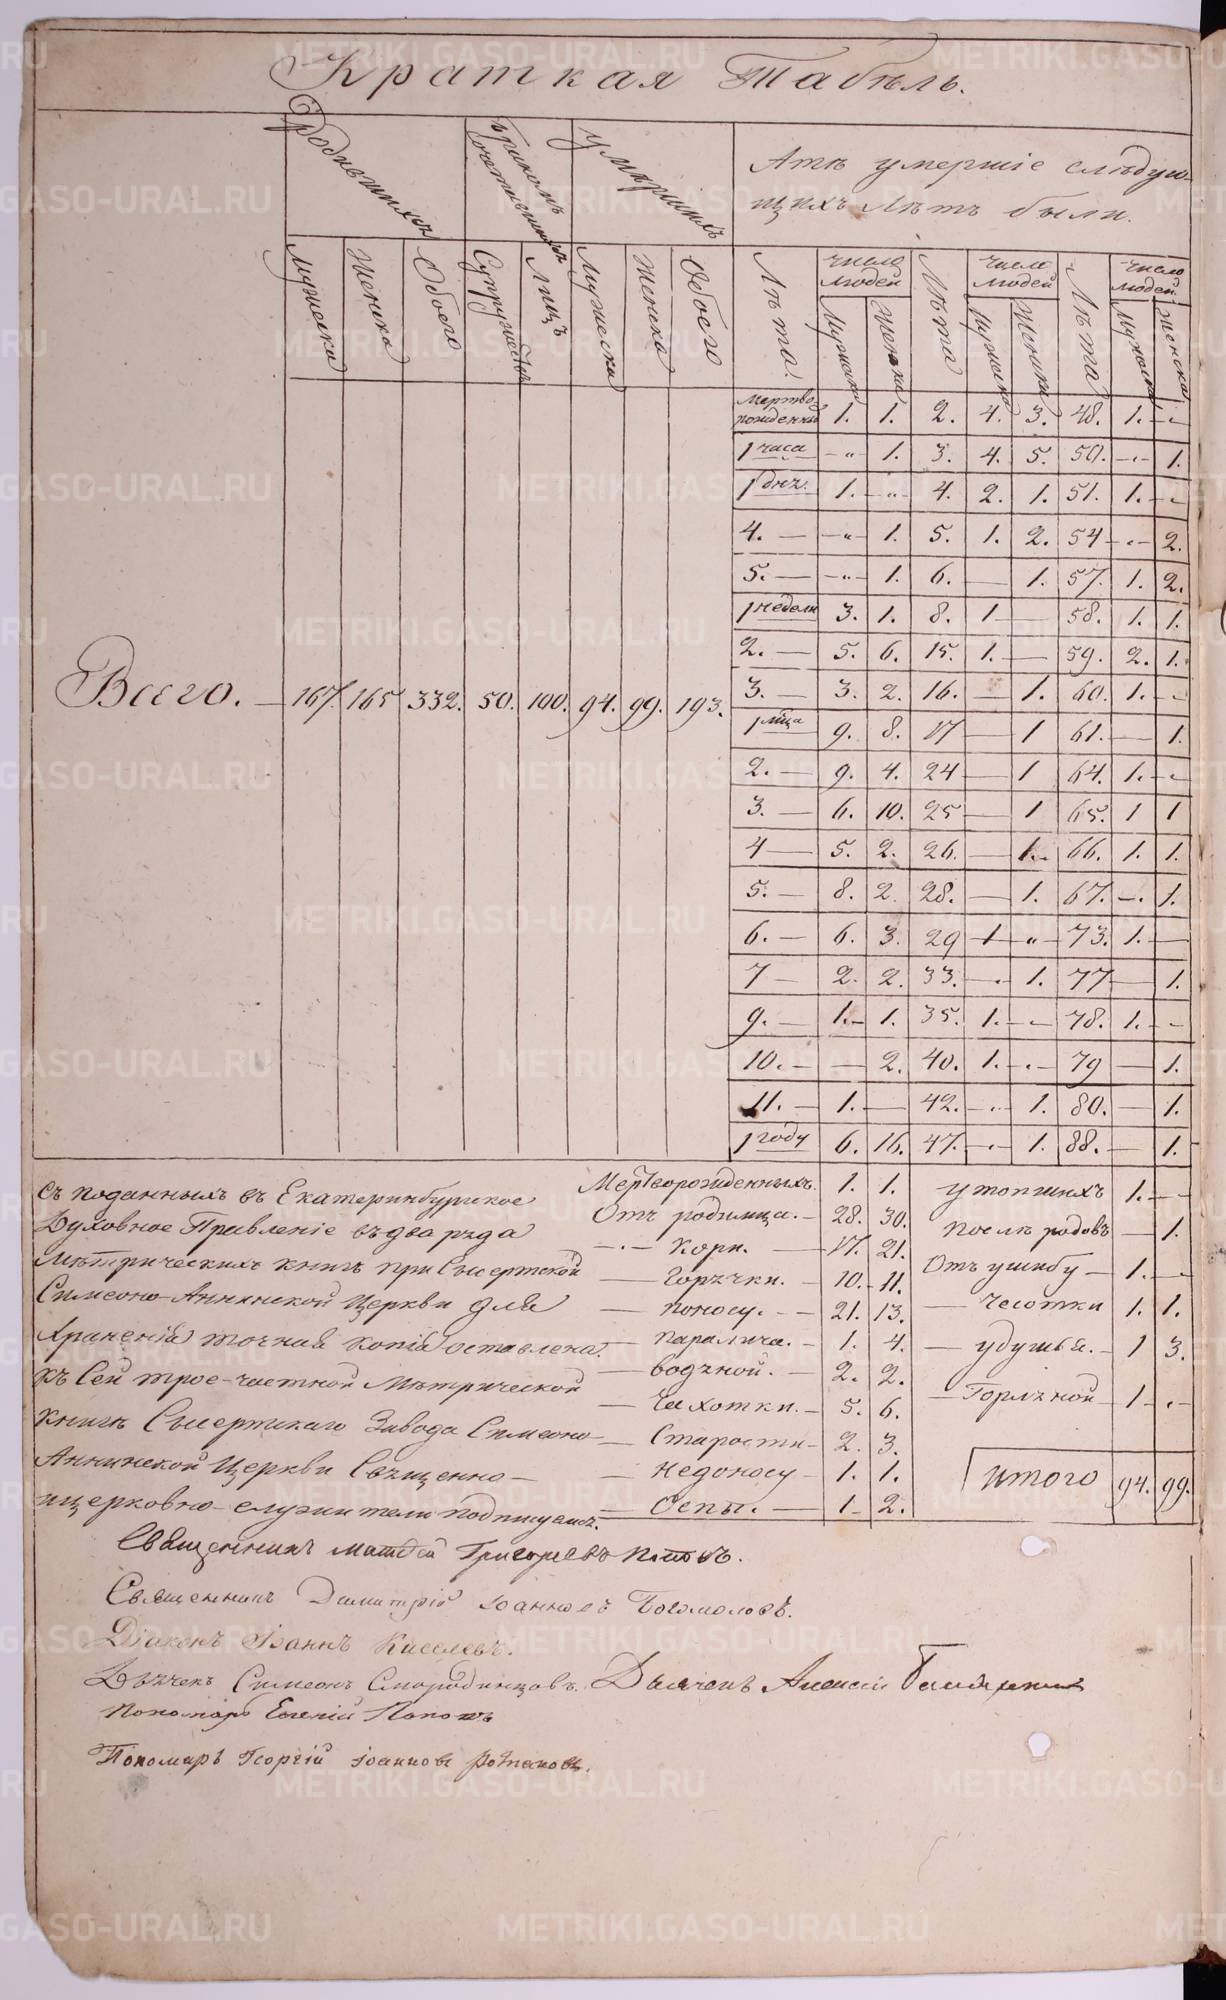 Краткая Табѣль.
Родившихся
Бракомъ сочетавшихся
Умершихъ
Атѣ умершіе слѣдую-
щихъ лѣтъ были.
Мужска Женска Обоего Супружествъ Лицъ Мужска Женска Обоего Лѣта. число людей Лѣта число людей Лѣта число людей
Мужска Женска Мужска Женска Мужска Женска
мертво-рожденныхъ 1. 1. 2. 4. 3. 48. 1. -"-
1 часа -"- 1. 3. 4. 5. 50. -"- 1.
1 днь. 1. -"- 4. 2. 1. 51. 1. -"-
4. — -"- 1. 5. 1. 2. 54 -"- 2.
5. — -"- 1. 6. — 1. 57. 1. 2.
1 недели 3. 1. 8. 1 — 58. 1. 1.
2. — 5. 6. 15. 1. — 59. 2. 1.
Всего. — 167. 165 332. 50. 100. 94. 99. 193.
3. — 3. 2. 16. — 1. 60. 1. -"-
1 мѣца 9. 8. 17 — 1 61. — 1.
2. — 9. 4. 24 — 1 64. 1. -"-
3. — 6. 10. 25 — 1 65. 1 1
4 — 5. 2. 26. — 1. 66. 1. 1.
5. — 8. 2. 28. — 1. 67. -"- 1.
6. — 6. 3. 29 1 -"- 73. 1. —
7 — 2. 2. 33. -"- 1. 77 — 1.
9. — 1. 1. 35. 1. -"- 78. 1. -"-
10. — — 2. 40. 1. -"- 79 — 1.
11. — 1. — 42. -"- 1. 80. — 1.
1 году 6. 16. 47. -"- 1. 88. — 1.
Съ поданныхъ въ Екатеринбургское
Духовное Правленіе въ два ряда
Мѣтрическихъ книгъ при Сысертской
Симеоно-Аннинской Церкви для
Храненія точная копія оставлена.
Къ Сей трое-частной Мѣтрической
книгѣ Сысертскаго Завода Симеоно-
Аннинской Церкви Священно-
ицерковно-служители подписуемся.
Мертворожденныхъ. 1. 1.
Отъ родимца. — 28. 30.
-"- Кори. — 17. 21.
— Горячки. — 10. 11.
— поносу. — 21. 13.
— паралича. — 1. 4.
— водяной. — 2. 2.
— Чахотки. — 5. 6.
— Старости — 2. 3.
— недоносу — 1. 1.
— Оспы. — 1 2.
утопшихъ 1. -"-
послѣ родовъ — 1.
Отъ ушибу — 1. -"-
— Чесотки 1. 1.
— удушья. — 1 3.
— Горляной 1 -"-
итого 94. 99.
Священникъ Матѳей Григорьевъ Поповъ.
Священникъ Димитрій Іоанновъ Богомоловъ.
Діаконъ Іоаннъ Киселевъ.
Дьячекъ Симеонъ Смородинцовъ. Дьячекъ Алексій
Пономарь Евгеній Поповъ
Пономарь Георгій Іоанновъ